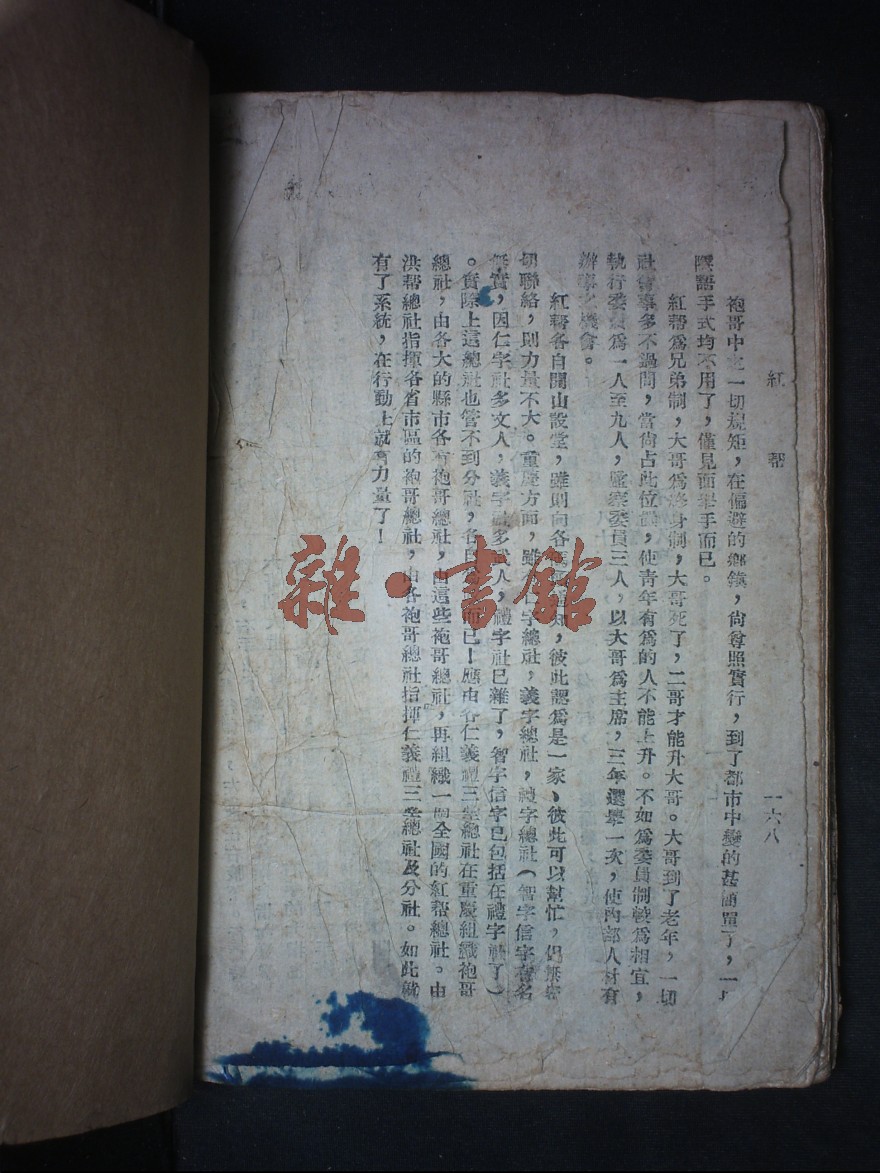 紅幫
一六八
袍哥中之一切規矩，在偏避的鄉鎮，尙尊照實行，到了都市中變的甚簡單了，一切
隱語手式均不用了，僅見面舉手而已。
紅幫爲兄弟制，大哥爲終身制，大哥死了，二哥才能升大哥。大哥到了老年，一切
社會事多不過問，當尙占此位置，使青年有爲的人不能上升。不如爲委員制較爲相宜，
執行委員爲一人至九人，監察委員三人，以大哥爲主席，三年選舉一次，使內部人材有
辦事之機會。
紅幫各自開山設堂，雖則向各通知，彼此認爲是一家、彼此可以幫忙，但無密
切聯絡，則力量不大。重慶方面，雖仁字總社，義字總社，禮字總社（智字信字有名
無實，因仁字社多文人，義字多人，禮字社已雜了，智字信字已包括在禮字社了）
。實際上這總社也管不到分社，各而已！應由各仁義禮三堂總社在重慶組織袍哥
總社，由各大的縣市各有袍哥總社，由這些袍哥總社，再組織一個全國的紅幫總社。由
洪帮總社指揮各省市區的袍哥總社，由各袍哥總社指揮仁義禮三堂總社及分社。如此就
有了系統，在行動上就有力量了！
雜·書館